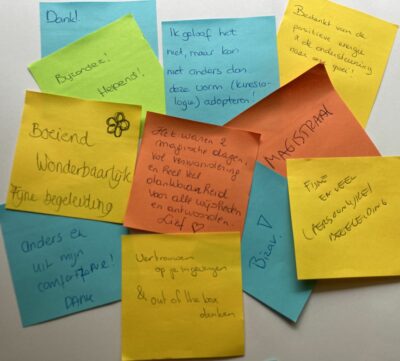 Dank!
Bijzonder!
Helpend!
Ik geloof het
niet, maar kan
niet anders dan
deze vorm (kinesio-
logie) adopteren!
Bedankt van de
positieve energie
& de ondersteuning
naar mijn groei!
Boeiend
Wonderbaarlijk
Fijne begeleiding
Het waren 2
magische dagen,
vol verwondering
en heel veel
dankbaarheid
voor alle wijsheden
en antwoorden.
Lief ♡
MAGISTRAAL
FIJNE
EN VEEL
(PERSOONLIJKE)
BEGELEIDING
Anders en
uit mijn
comfortzone!
DANK
Vertrouwen
op je ingevingen
& out of the box
denken
Bizar!